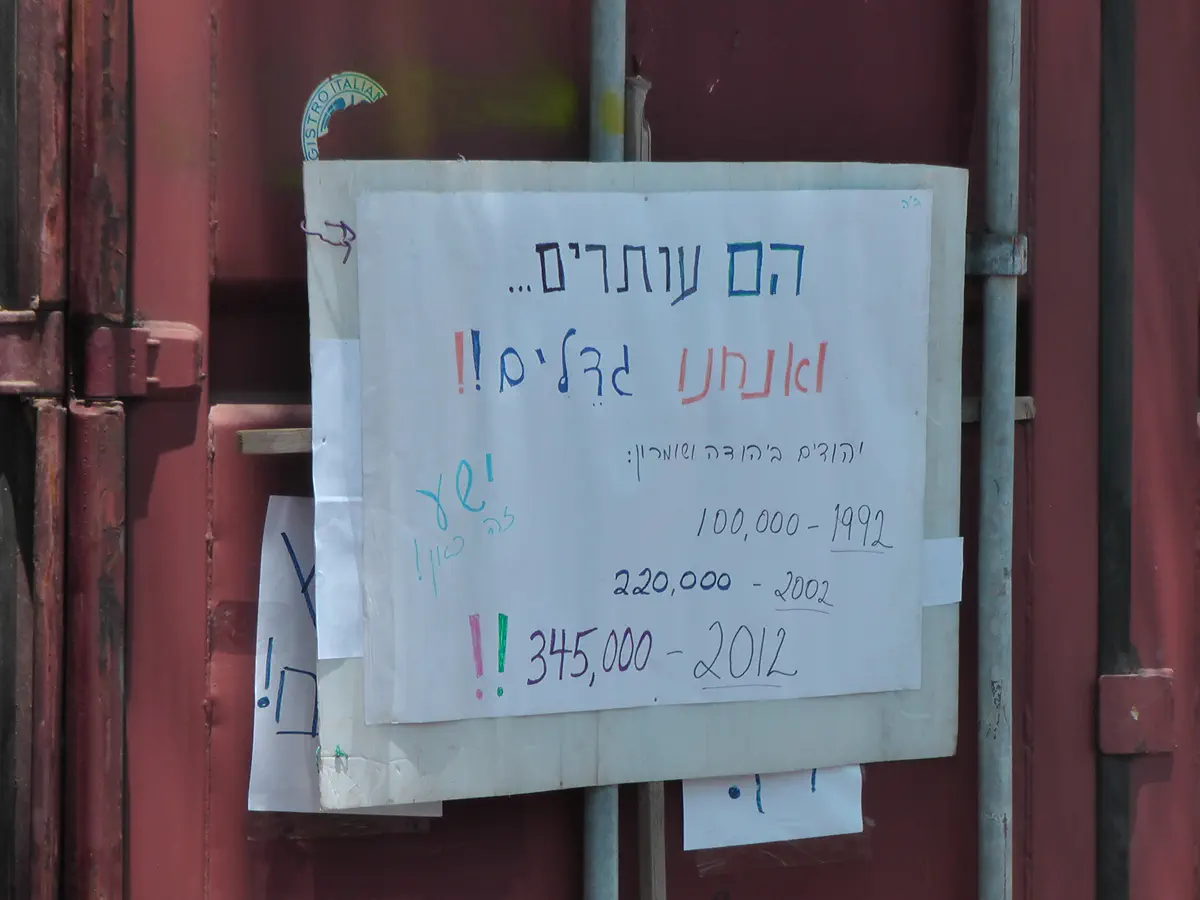 GISTRO ITALIAN
ב"ה
הם עותרים...
ואנחנו גדלים!!
יהודים ביהודה ושומרון:
1992 - 100,000
2002 - 220,000
2012 - 345,000!!
ישע
זה כאן!